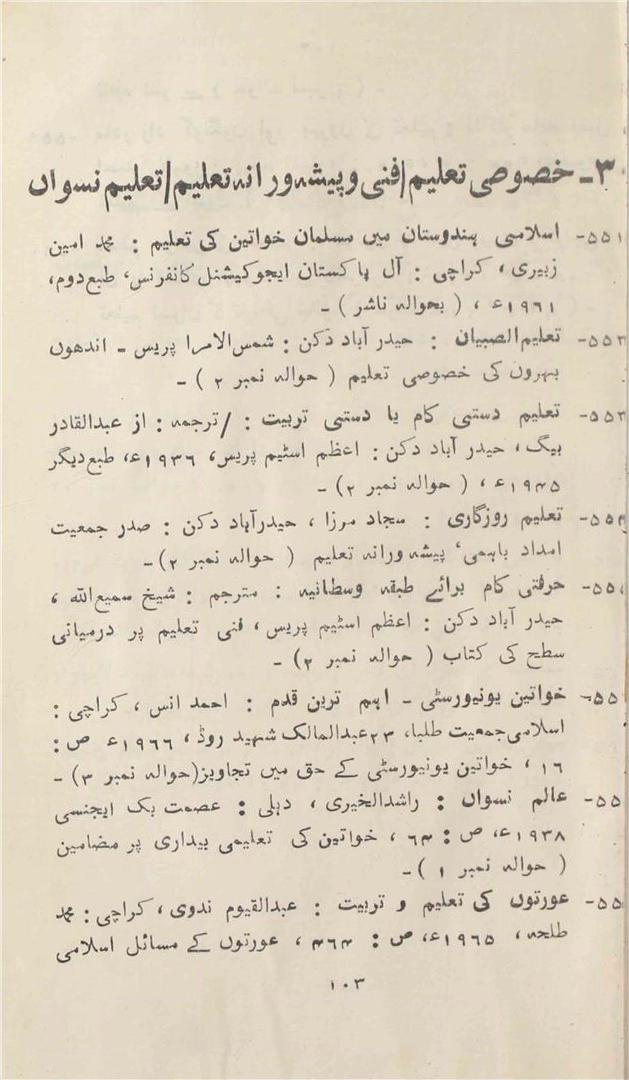 ۳ـ خصوصی تعلیم/فنی و پیشہ ورانہ تعلیم/تعلیم نسواں
۵۵۱ـ اسلامی ہندوستان میں مسلمان خواتین کی تعلیم : محمد امین
زبیری ، کراچی : آل پاکستان ایجوکیشنل کانفرنس، طبع دوم،
۱۹۶۱ء ، ( بحوالہ ناشر ) ـ
تعلیم الصبیان : حیدر آباد دکن : شمس الامرا پریس ـ اندھوں
بہروں کی خصوصی تعلیم ( حوالہ نمبر ۲ ) ـ
۵۵۳ـ تعلیم دستی کام یا دستی تربیت : /ترجمہ : از عبدالقادر
بیگ ، حیدر آباد دکن : اعظم اسٹیم پریس، ۱۹۳۶ء، طبع دیگر
۱۹۴۵ء ، ( حوالہ نمبر ۲) ـ
۵۵۴ـ تعلیم روزگاری : سجاد مرزا ، حیدرآباد دکن : صدر جمعیت
امداد باہمی، پیشہ ورانہ تعلیم ( حوالہ نمبر ۲) ـ
۵۵ـ حرفتی کام برائے طبقہ وسطانیہ : مترجم : شیخ سمیع اللہ ،
حیدر آباد دکن : اعظم اسٹیم پریس ، فنی تعلیم پر درمیانی
سطح کی کتاب ( حوالہ نمبر ۲) ـ
۵۵ـ خواتین یونیورسٹی ـ اہم ترین قدم : احمد انس ، کراچی :
اسلامی جمعیت طلبا، ۲۳ عبدالمالک شہید روڈ ، ۱۹۶۶ء ص :
۱۶ ، خواتین یونیورسٹی کے حق میں تجاویز(حوالہ نمبر ۳) ـ
۵۵ـ عالم نسواں : راشدالخیری ، دہلی : عصمت بک ایجنسی
۱۹۳۸ء، ص : ۶۴ ، خواتین کی تعلیمی بیداری پر مضامین
( حوالہ نمبر ۱ ) ـ
۵۵ـ عورتوں کی تعلیم و تربیت : عبدالقیوم ندوی ، کراچی : محمد
طلحہ ، ۱۹۶۵ء، ص : ۴۶۴ ، عورتوں کے مسائل اسلامی
۱۰۳